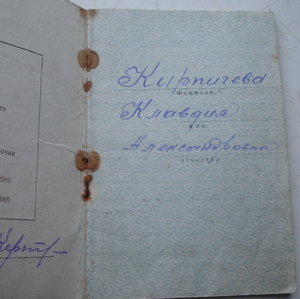 Кирпичева
(ФАМИЛИЯ)
Клавдия
ИМЯ
Александровна
ОТЧЕСТВО